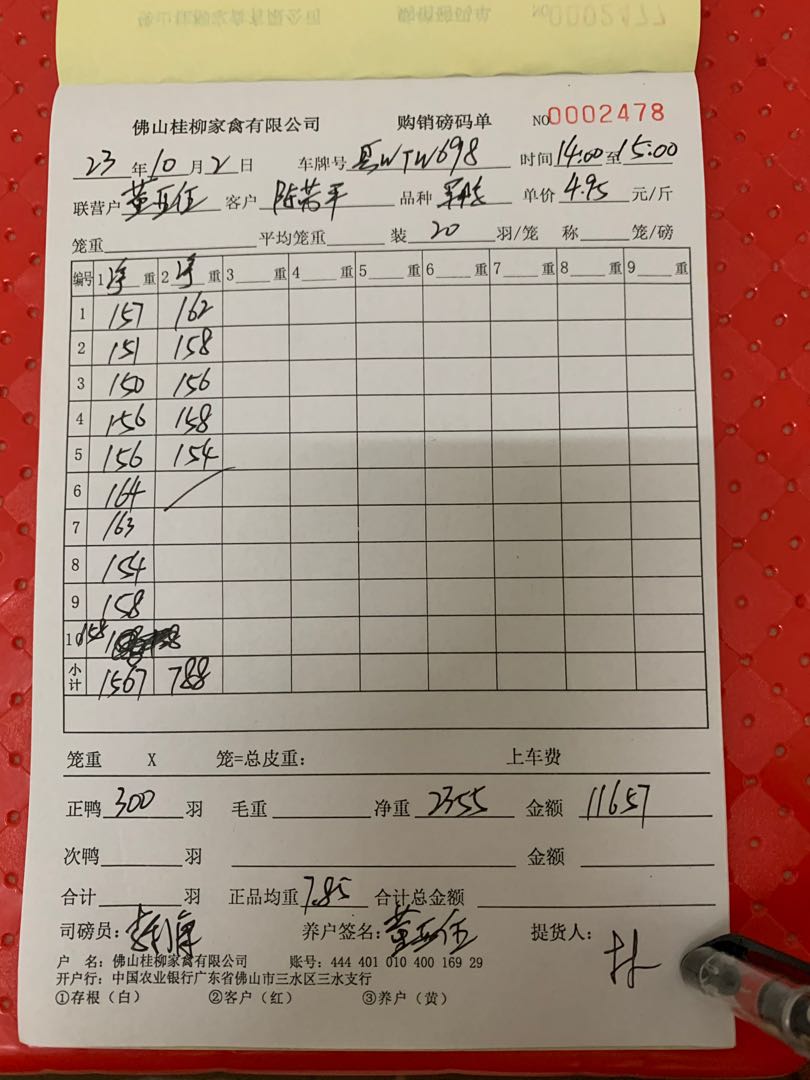 佛山桂柳家禽有限公司 购销磅码单 NO 0002478
23 年 10 月 2 日 车牌号 WTW698 时间 14:00 至 15:00
联营户 董亚伍 客户 陈荣平 品种 单价 4.95 元/斤
笼重 平均笼重 装 20 羽/笼 称 笼/磅
编号 1 净 重 2 净 重 3 重 4 重 5 重 6 重 7 重 8 重 9 重
1 157 162
2 151 158
3 150 156
4 156 158
5 156 154
6 164
7 163
8 154
9 158
10 158
小计 1567 788
笼重 X 笼=总皮重： 上车费
正鸭 300 羽 毛重 净重 2355 金额 11657
次鸭 羽 金额
合计 羽 正品均重 7.85 合计总金额
司磅员： 养户签名：董亚伍 提货人：
户 名：佛山桂柳家禽有限公司 账号：444 401 010 400 169 29
开户行：中国农业银行广东省佛山市三水区三水支行
①存根（白） ②客户（红） ③养户（黄）